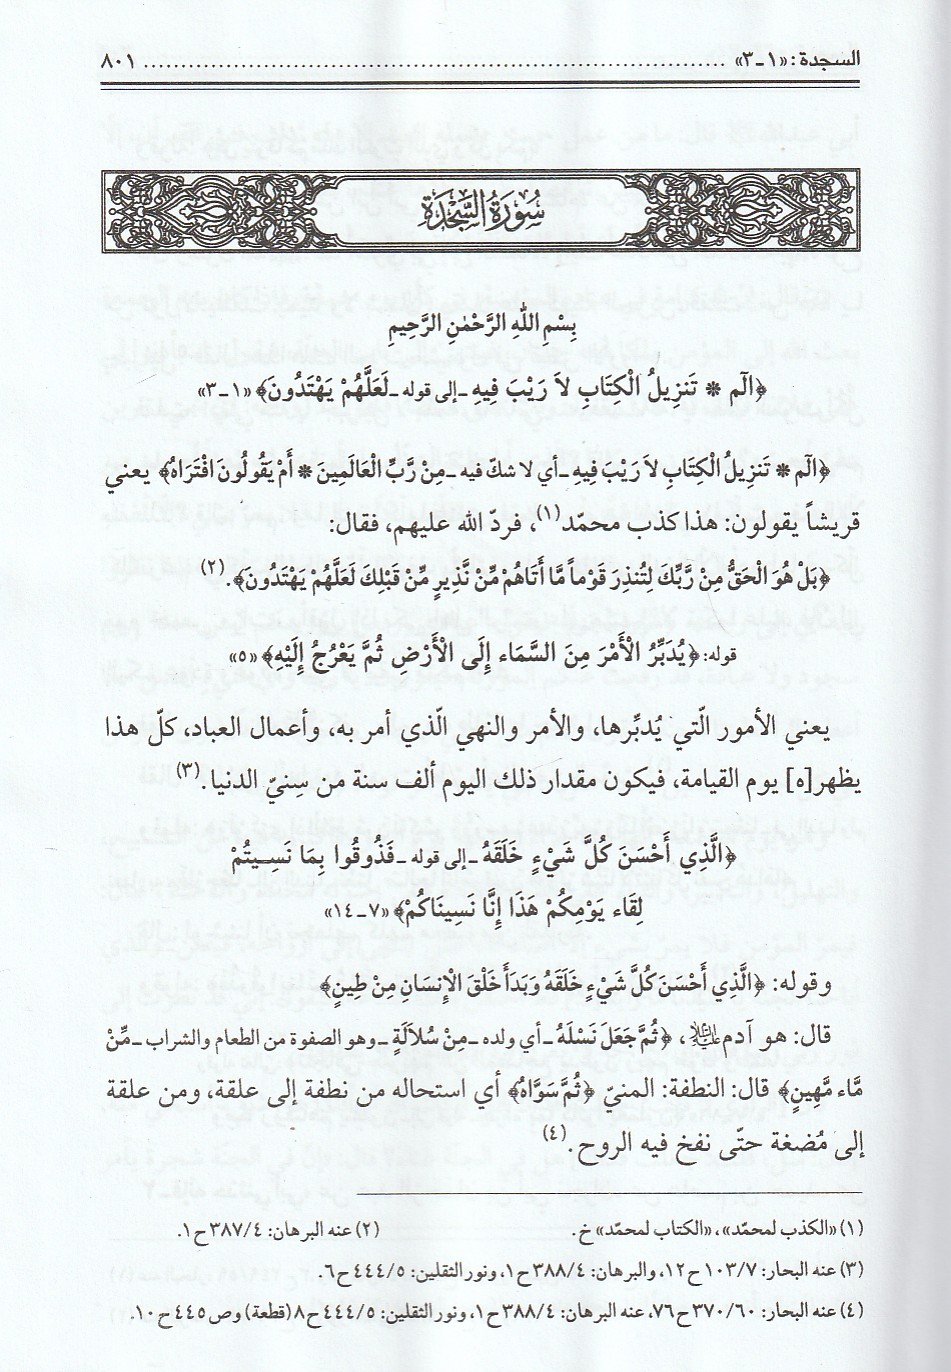 السجدة: «١ـ٣» ........................................................................ ٨٠١
سُورَةُ السَّجْدَةِ
بِسْمِ اللهِ الرَّحْمٰنِ الرَّحِيمِ
﴿الٓم * تَنزِيلُ الْكِتَابِ لاَ رَيْبَ فِيهِ ـإلى قوله ـلَعَلَّهُمْ يَهْتَدُونَ﴾ «١ـ٣»
﴿الٓم * تَنزِيلُ الْكِتَابِ لاَ رَيْبَ فِيهِ ـأي لا شكّ فيه ـمِنْ رَّبِّ الْعَالَمِينَ * أَمْ يَقُولُونَ افْتَرَاهُ﴾ يعني
قريشاً يقولون: هذا كذب محمّد(١)، فردّ الله عليهم، فقال:
﴿بَلْ هُوَ الْحَقُّ مِنْ رَّبِّكَ لِتُنذِرَ قَوْماً مَّا أَتَاهُمْ مِّنْ نَّذِيرٍ مِّنْ قَبْلِكَ لَعَلَّهُمْ يَهْتَدُونَ﴾.(٢)
قوله: ﴿يُدَبِّرُ الْأَمْرَ مِنَ السَّمَاء إِلَى الْأَرْضِ ثُمَّ يَعْرُجُ إِلَيْهِ﴾ «٥»
يعني الأمور الّتي يُدبِّرها، والأمر والنهي الّذي أمر به، وأعمال العباد، كلّ هذا
يظهر[ه] يوم القيامة، فيكون مقدار ذلك اليوم ألف سنة من سِنيّ الدنيا.(٣)
﴿الَّذِي أَحْسَنَ كُلَّ شَيْءٍ خَلَقَهُ ـإلى قوله ـفَذُوقُوا بِمَا نَسِيتُمْ
لِقَاء يَوْمِكُمْ هَذَا إِنَّا نَسِينَاكُمْ﴾ «٧ـ١٤»
وقوله: ﴿الَّذِي أَحْسَنَ كُلَّ شَيْءٍ خَلَقَهُ وَبَدَأَ خَلْقَ الْإِنسَانِ مِنْ طِينٍ﴾
قال: هو آدم عليه السلام، ﴿ثُمَّ جَعَلَ نَسْلَهُ ـأي ولده ـمِنْ سُلاَلَةٍ ـوهو الصفوة من الطعام والشراب ـمِّنْ
مَّاء مَّهِينٍ﴾ قال: النطفة: المنيّ ﴿ثُمَّ سَوَّاهُ﴾ أي استحاله من نطفة إلى علقة، ومن علقة
إلى مُضغة حتّى نفخ فيه الروح.(٤)
(١) «الكذب لمحمّد»، «الكتاب لمحمّد» خ. (٢) عنه البرهان: ٣٨٧/٤ ح١.
(٣) عنه البحار: ١٠٣/٧ ح١٢، والبرهان: ٣٨٨/٤ ح١، ونور الثقلين: ٤٤٤/٥ ح٦.
(٤) عنه البحار: ٣٧٠/٦٠ ح٧٦، عنه البرهان: ٣٨٨/٤ ح١، ونور الثقلين: ٤٤٤/٥ ح٨ (قطعة) وص ٤٤٥ ح١٠.